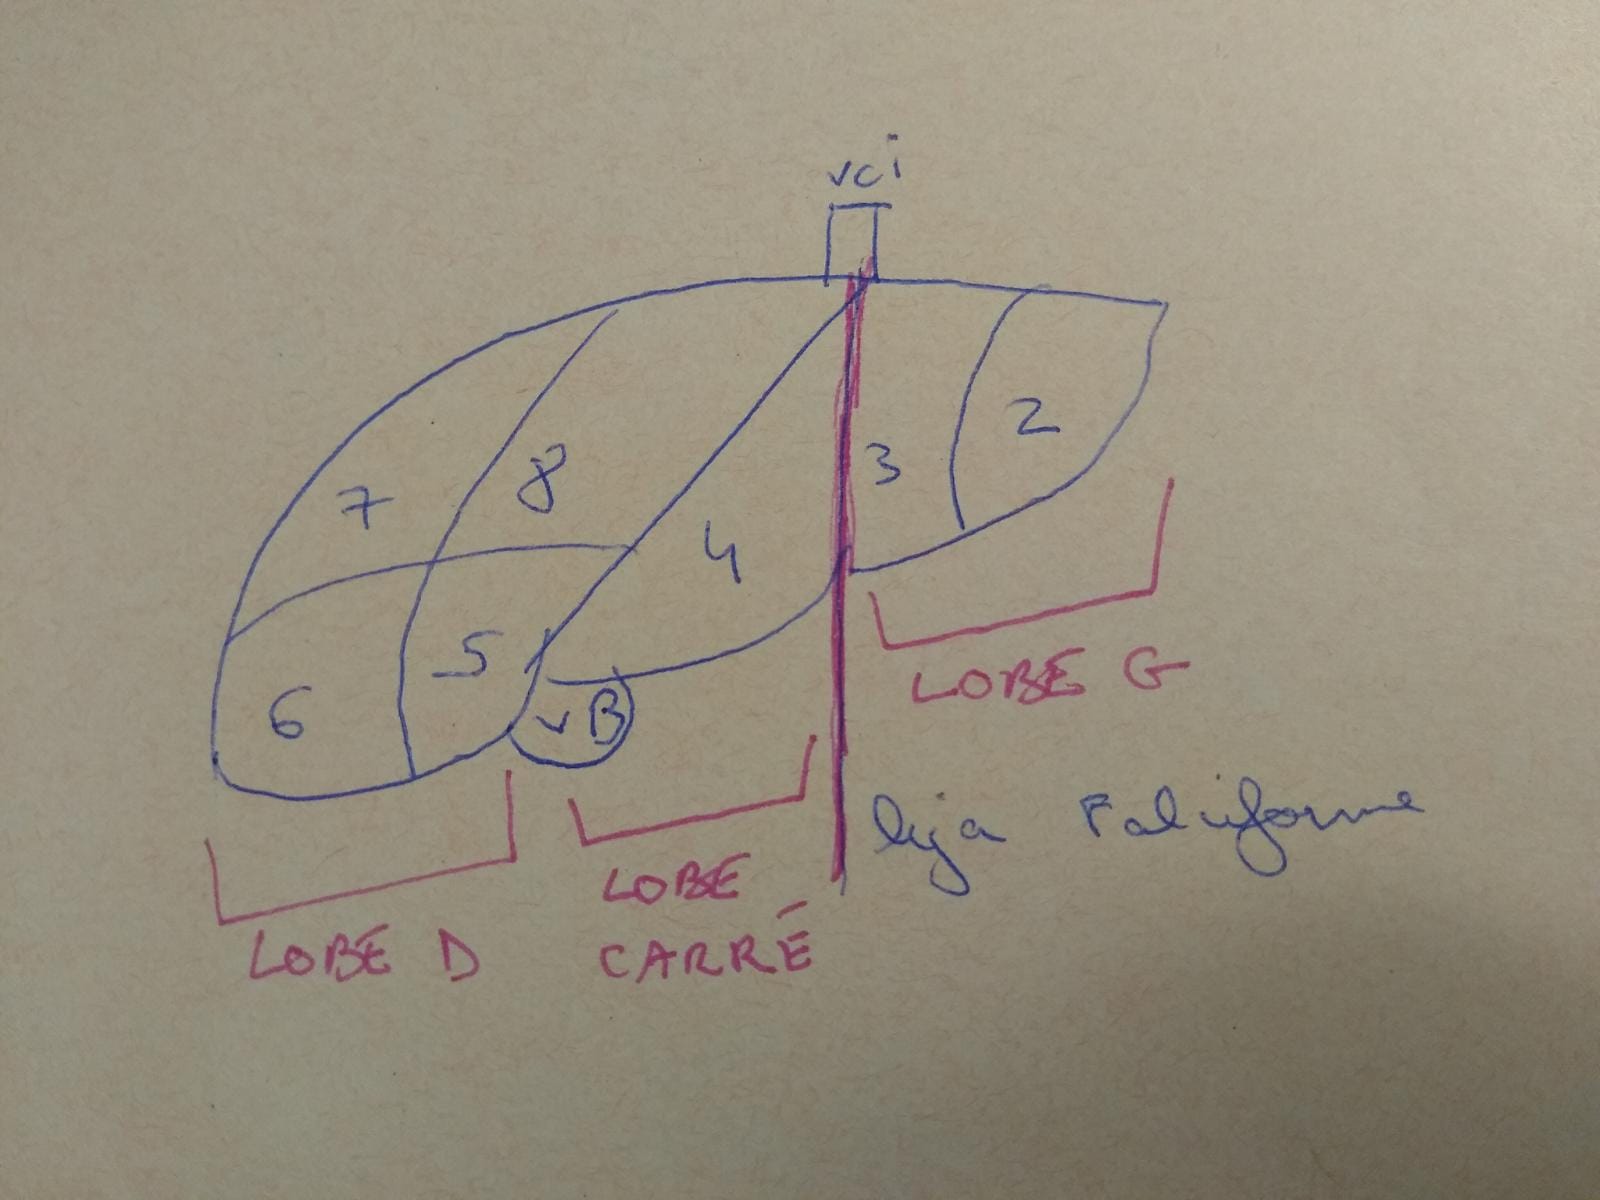 vci
2
3
8
7
4
5
6
vB
LOBE G
liga Falciforme
LOBE
CARRÉ
LOBE D